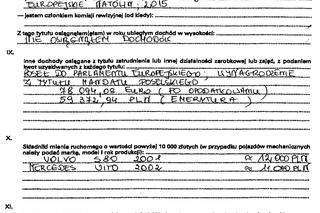 EUROPEJSKIE NATOLIN, 2015
— jestem członkiem komisji rewizyjnej (od kiedy):
Z tego tytułu osiągnęłam(ąłem) w roku ubiegłym dochód w wysokości:
NIE OSIĄGNĄŁEM DOCHODÓW
IX.
Inne dochody osiągane z tytułu zatrudnienia lub innej działalności zarobkowej lub zajęć, z podaniem
kwot uzyskiwanych z każdego tytułu:
POSEŁ DO PARLAMENTU EUROPEJSKIEGO; WYNAGRODZENIE
Z TYTUŁU MANDATU POSELSKIEGO
78 094,08 EURO (PO OPODATKOWANIU)
59 372,94 PLN (EMERYTURA)
X.
Składniki mienia ruchomego o wartości powyżej 10 000 złotych (w przypadku pojazdów mechanicznych
należy podać markę, model i rok produkcji):
VOLVO S80 2001 ≈ 12 000 PLN
MERCEDES VITO 2002 ≈ 11 000 PLN
XI.